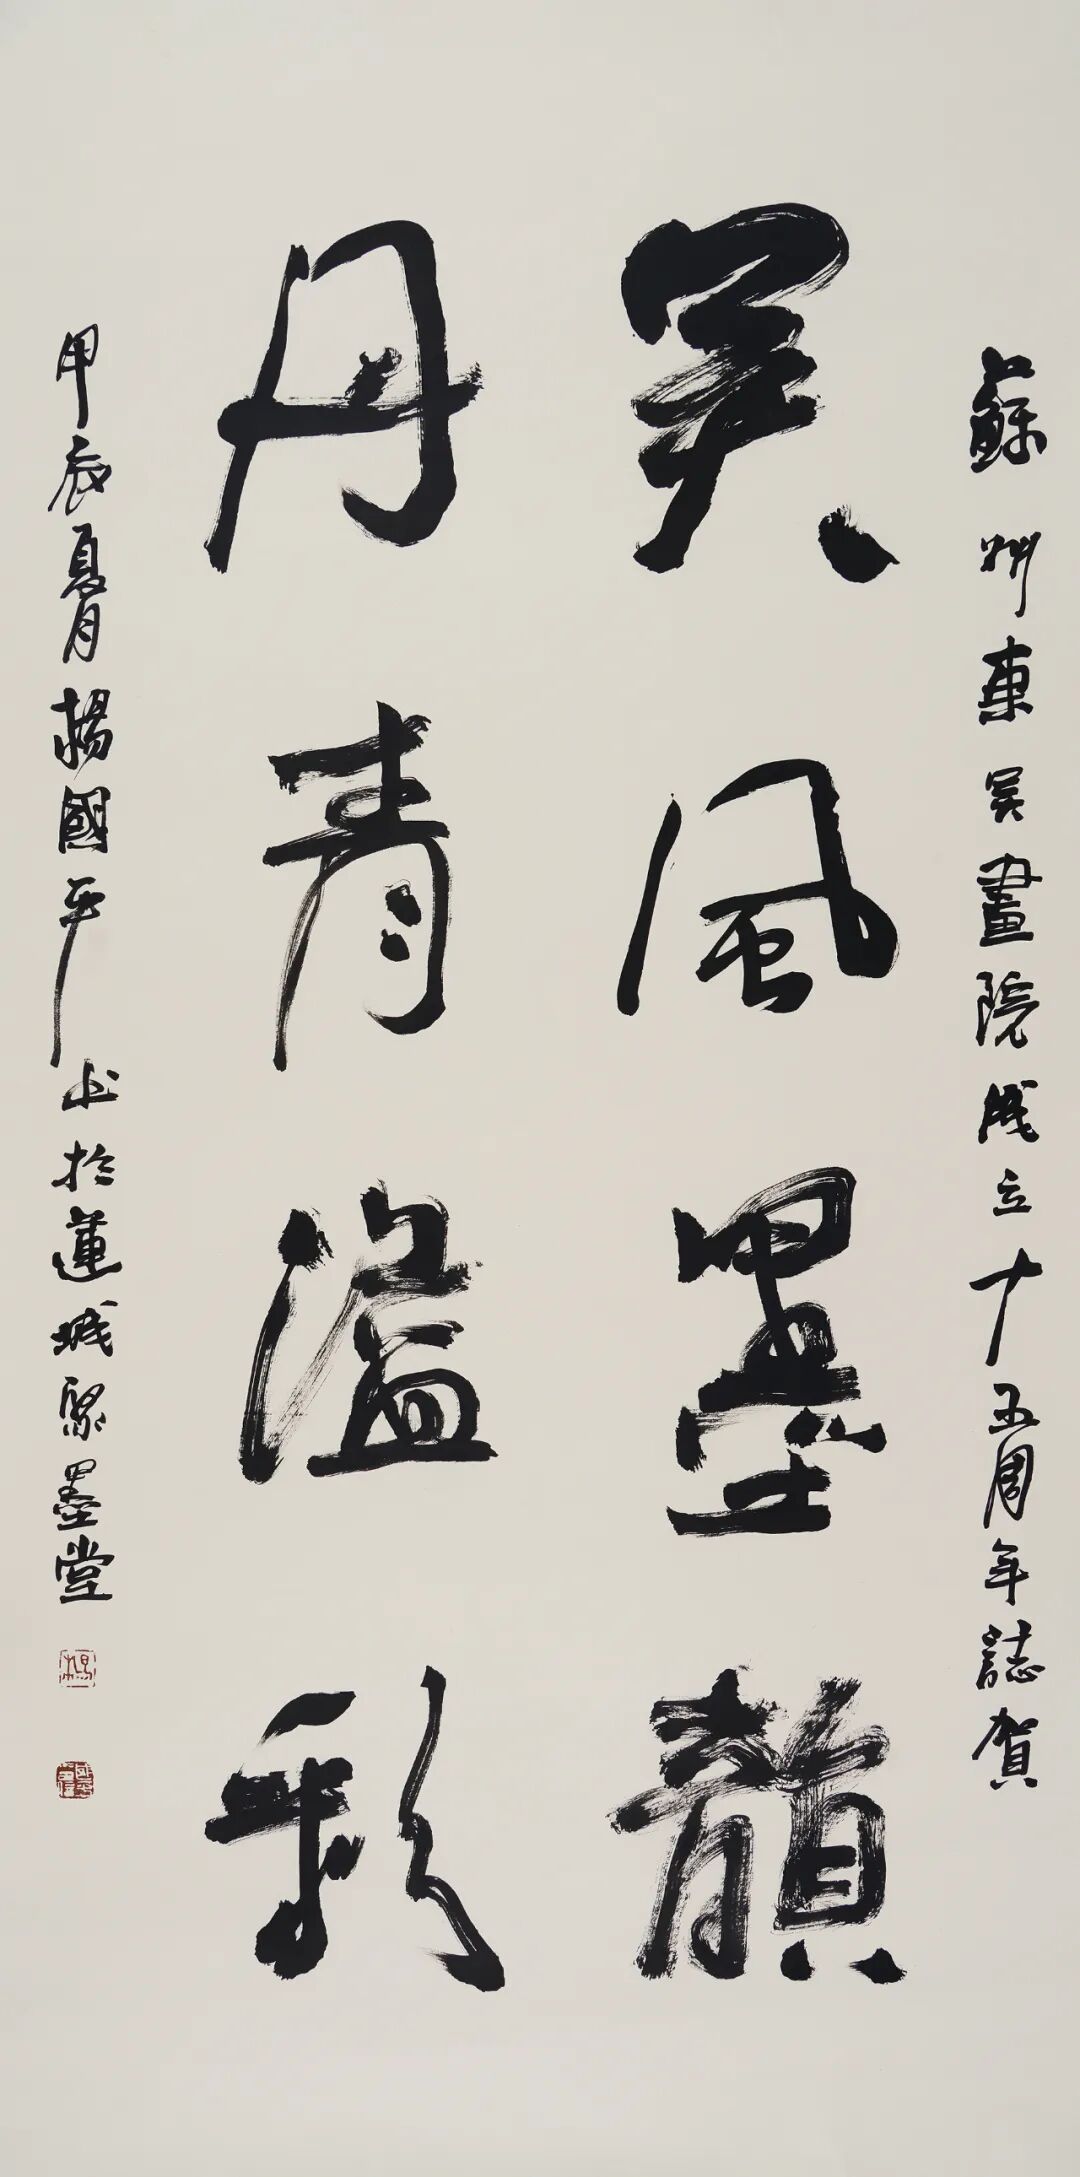 蘇州東吳畫院成立十五周年誌賀
吳風墨韻
丹青溢彩
甲辰夏月楊國平书於蓮城聚墨堂
楊